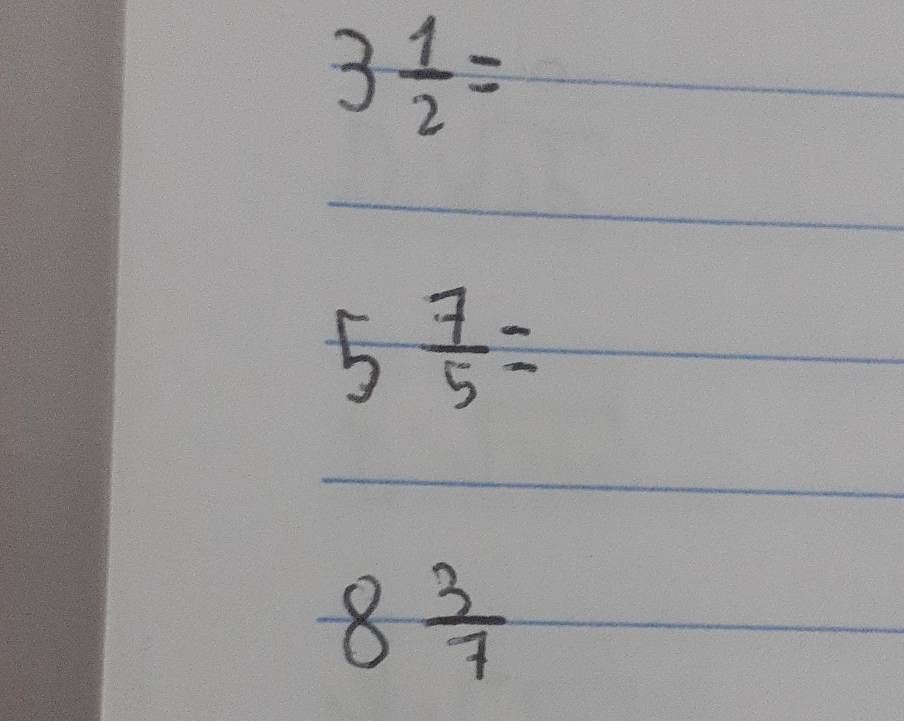 3 1/2 =
5 7/5 =
8 3/7